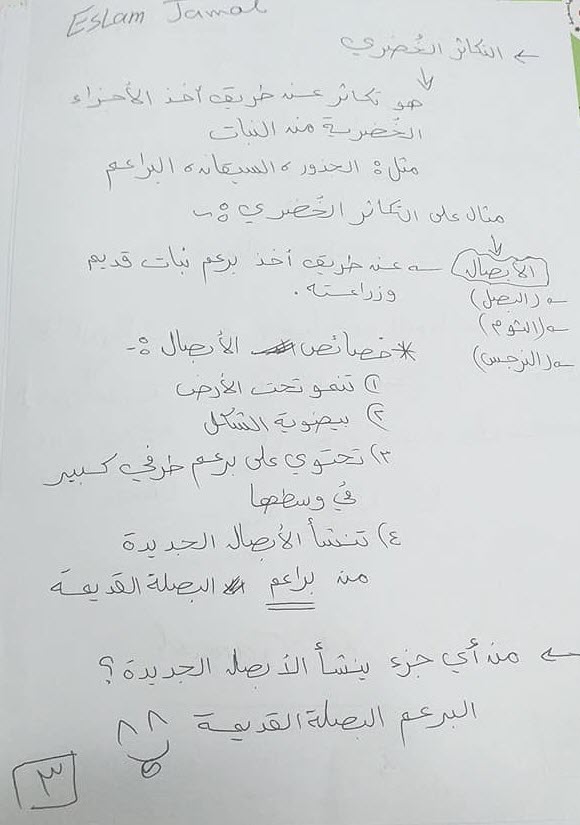 Eslam Jamal
← التكاثر الخُضري
↓
هو تكاثر عن طريق أخذ الأجزاء
الخُضرية من النبات
مثل: الجذور، السيقان، البراعم
مثال على التكاثر الخُضري :-
↓
الأبصال ← عن طريق أخذ برعم نبات قديم
وزراعته.
← (البصل)
← (الثوم)
← (النرجس)
* خصائص الأبصال :-
١) تنمو تحت الأرض
٢) بيضوية الشكل
٣) تحتوي على برعم طرفي كبير
في وسطها
٤) تنشأ الأبصال الجديدة
من براعم البصلة القديمة
← من أي جزء ينشأ الأبصال الجديدة؟
البرعم البصلة القديمة
٣